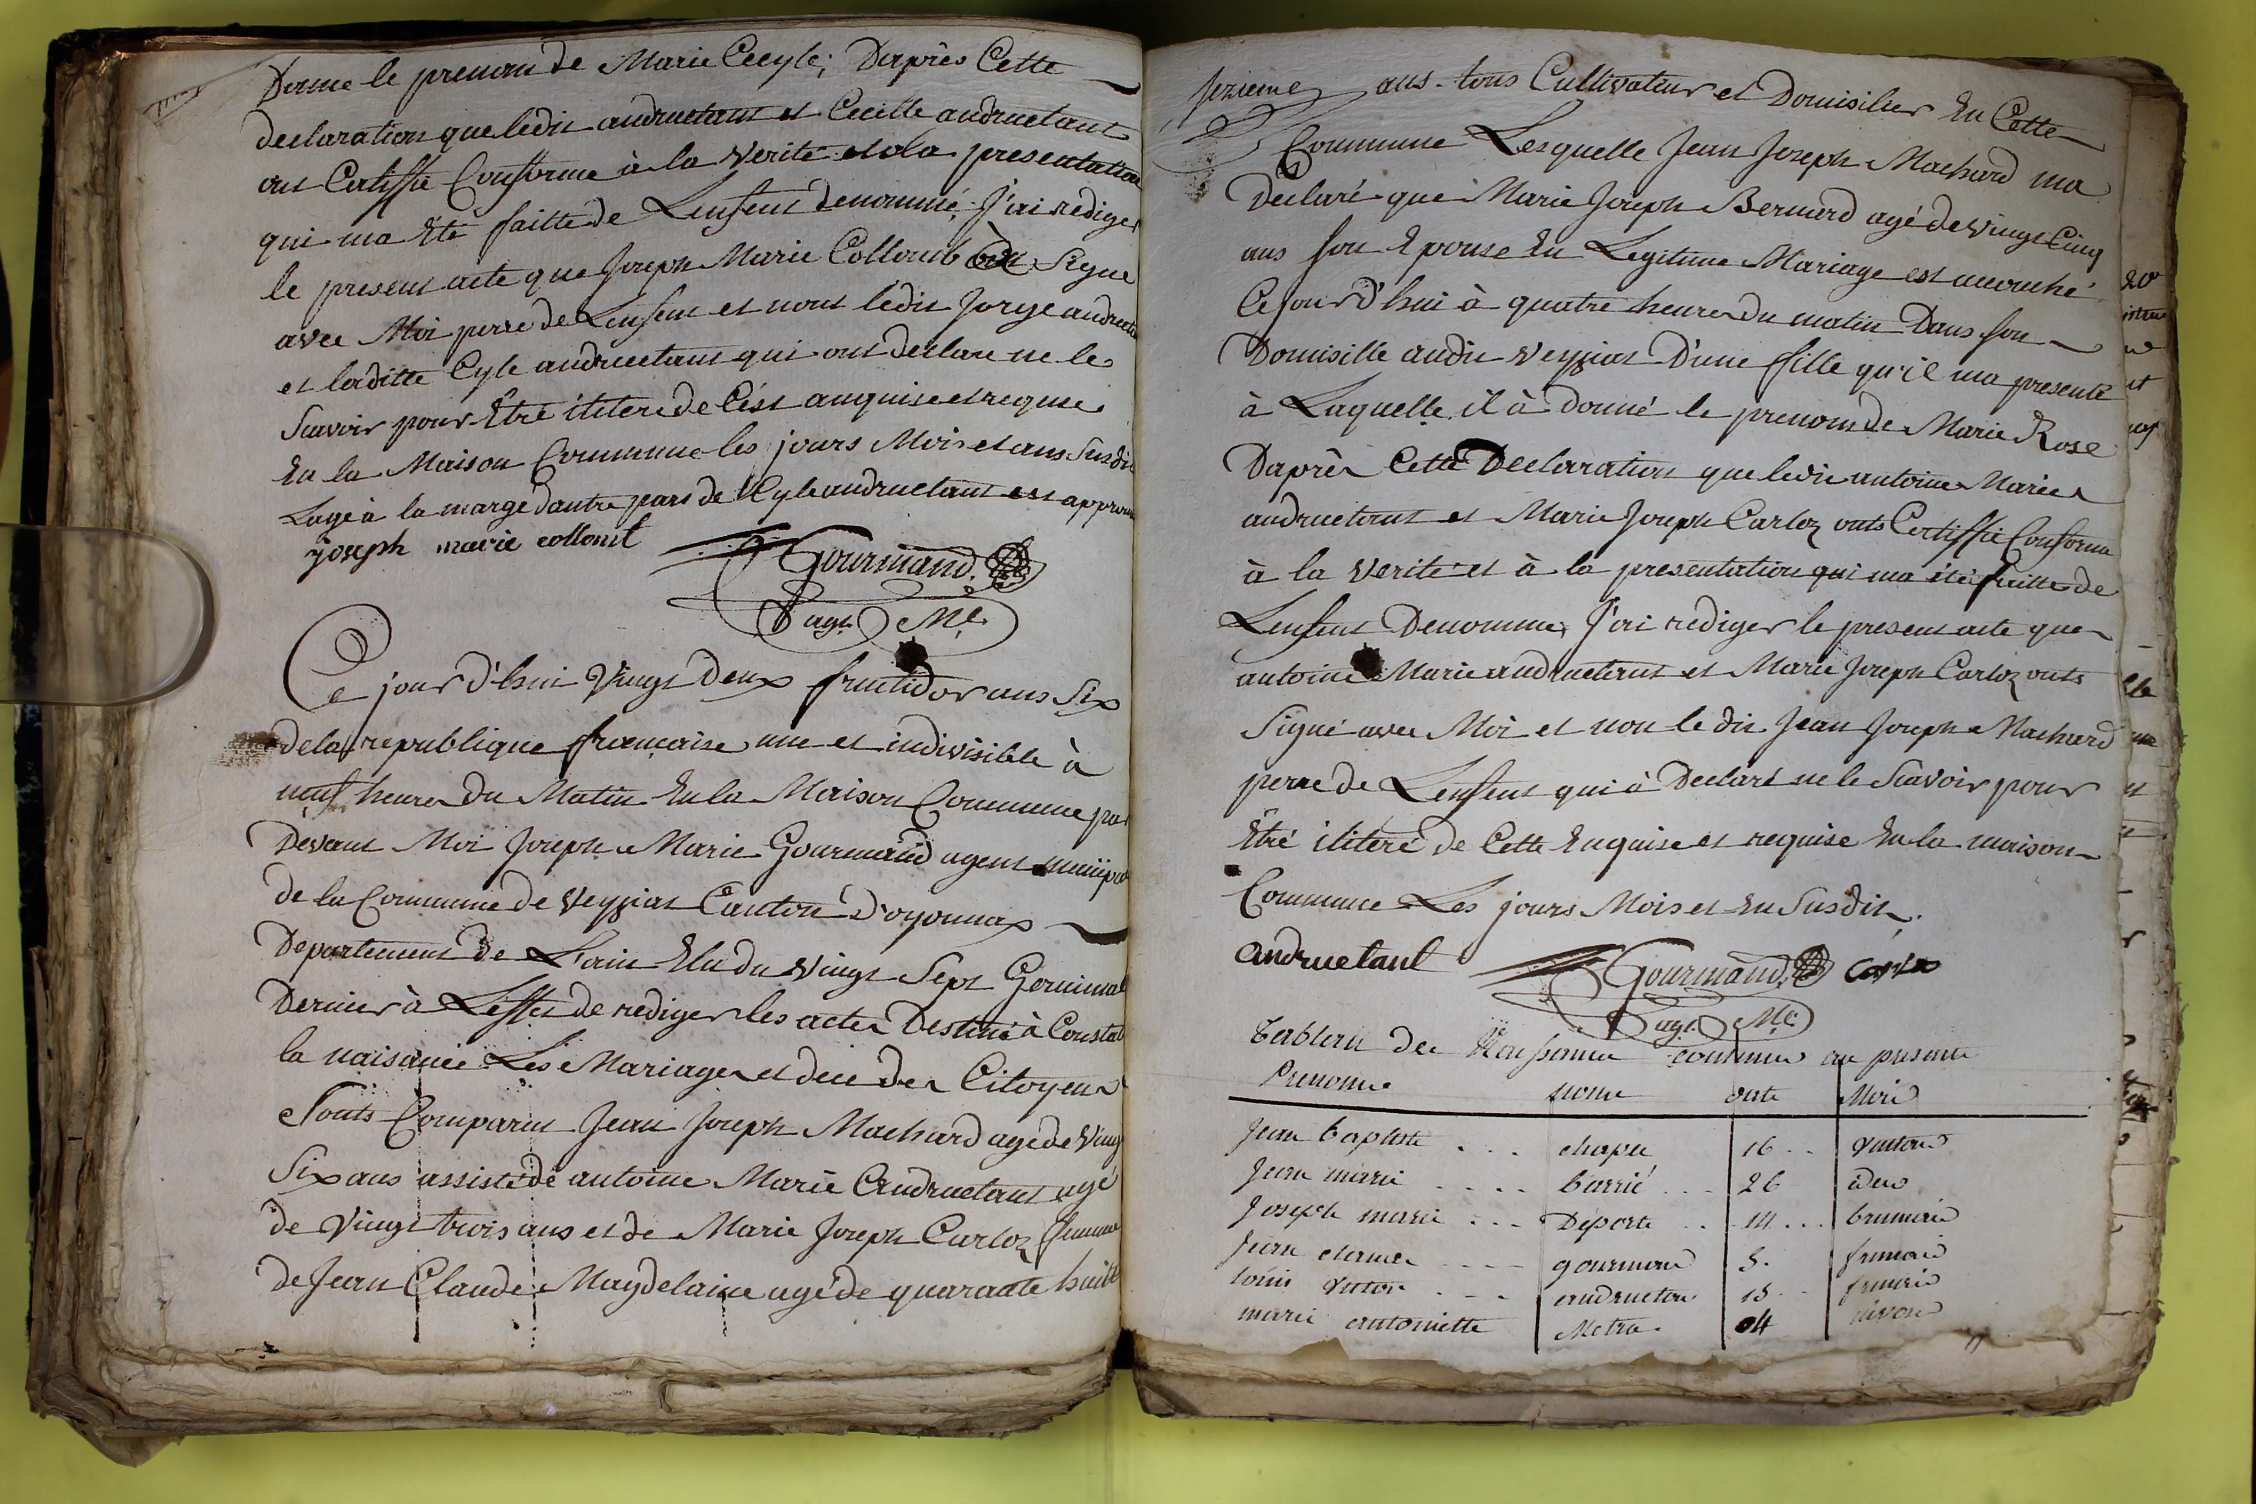 Donne le prenom de Marie Cecyle; Daprès Cette
declaration que ledit andruetant et Cecille andruetant
ont Certiffié Conforme à la verité et a la presentation
qui ma Eté faitte de Lenfent denommé; J'ai rediger
le present acte que Joseph Marie Collomb Signe
avec Moi perre de Lenfent et nont ledit Jorge andrueta
et laditte Cyle andruetant qui ont declare ne le
Scavoir pour Etre iliteré de Cést anquise et requise
En la Maison Commune les jours Mois et ans Susdit
Lage à la marge dautre pars de Cyle andruetant est approuv
joseph marie collomb
Gourmand
agt. Ml.
Ce jourd'hui Vingt Deux fructidor ans Six
de la republique française une et indivisible à
neuf heures du Matin En la Maison Commune par
Devant Moi Joseph Marie Gourmand agent
de la Commune de Veyziat Canton D'oyonnax
Departement de L'ain Elu du Vingt Sept Germinal
Dernier à Leffet de rediger les actes Destiné à Constat
la naisance Les Mariages et dece des Citoyens
Sonts Comparus Jean Joseph Machard agé de Ving
Six ans assisté de antoine Marie Andruetant agé
de Vingt trois ans et de Marie Joseph Carloz femme
de Jean Claude Maydelaine agé de quarante huit
ans tous Cultivateur et Domisilier En Cette
Commune Lesquelle Jean Joseph Machard ma
Declaré que Marie Joseph Bernard agé de Vingt Cinq
ans Son Epouse En Legitime Mariage est accouché
Cejourd'hui à quatre heures du matin Dans Son
Domisille audit Veyziat D'une fille qu'il ma presenté
à Laquelle il à donné le prenom de Marie Rose
Daprès Cette Declaration que ledit antoine Marie
andruetant et Marie Joseph Carloz onts Certiffié Conforme
à la verité et à la presentation qui ma été faitte de
Lenfent Denomme, J'ai rediger le present acte que
antoine Marie andruetant et Marie Joseph Carloz onts
Signé avec Moi et non le dit Jean Joseph Machard
perre de Lenfent qui à Declaré ne le Scavoir pour
Etré iliteré de Cette Enquise et requise En la maison
Commune Les jours Mois et En Susdit.
andruetant Gourmand
agt. Ml.
Prenoms noms date Mois
Jean baptiste . . . chapu 16 . .
Jean marie . . . . barrié . . . 26 idem
Joseph marie . . . Déporte . . . . . brumaire
Jean . . . . gourmand 5. frimaire
louis Victor . . . andruetan 15 . . frimaire
marie antoinette Metra 04 nivose